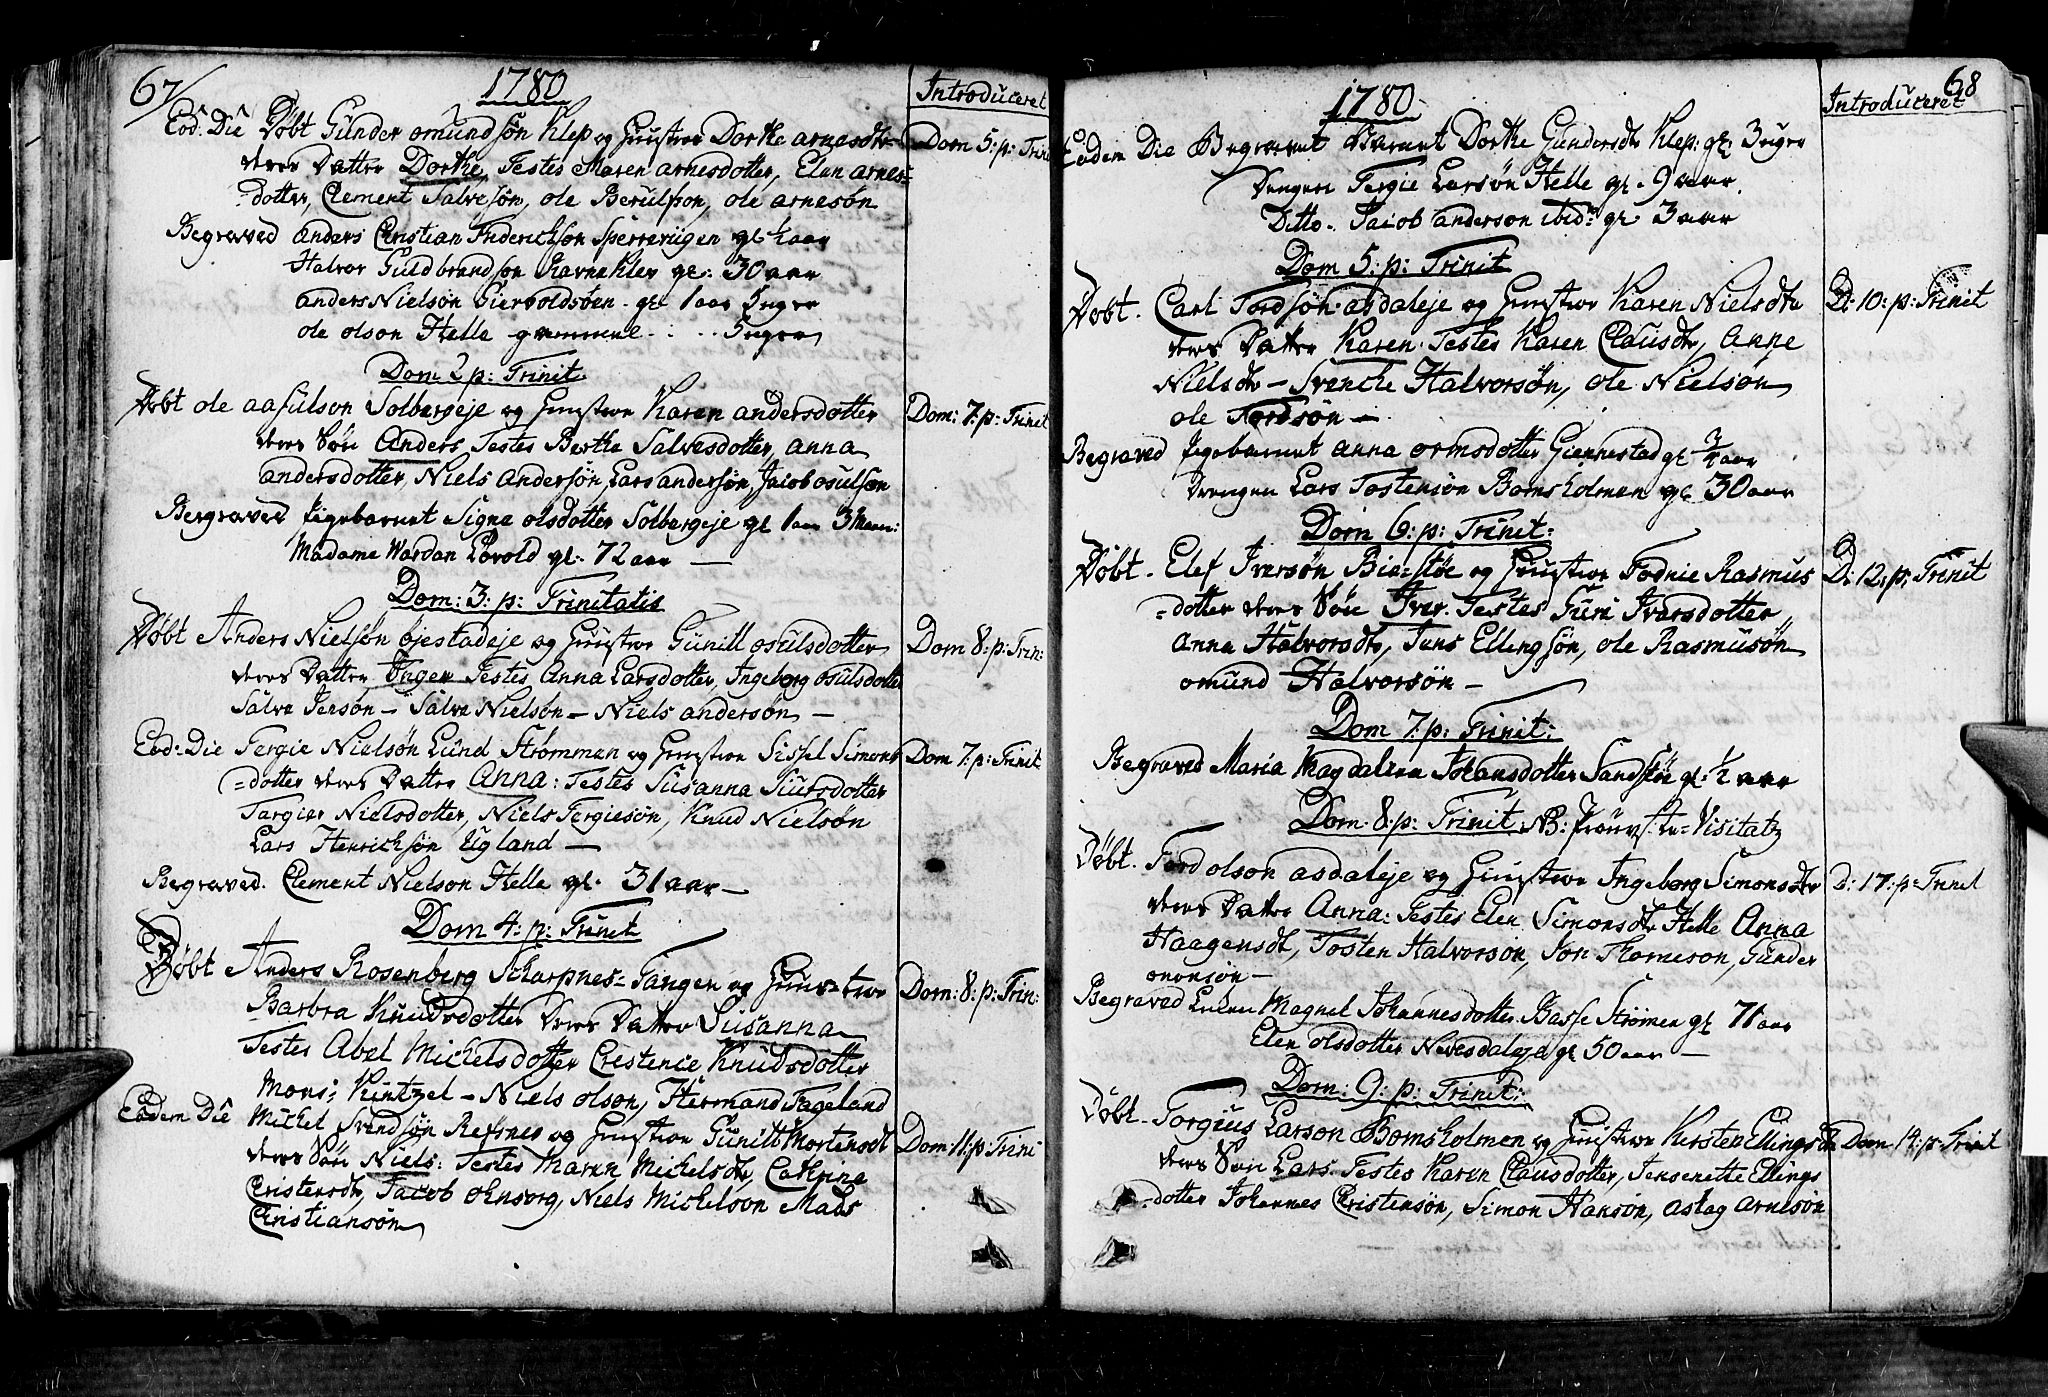 67/
1780
Introduceret
Eod. Die Døbt Gunder omundsøn Klep og Hustroe Dorthe arnesdtr
Dom 5: p: Trin
deres Datter Dorthe, Testes Maren arnesdotter, Elen arnes=
=dotter, Clement Salvesøn, ole Berulson, ole arnesøn
Begraved anders Christian Friderichsøn Sperreviigen gl ½ aar
Halvor Guldbrandsøn gl: 30 aar
anders Nielsøn gl 1 aar
ole olson Helle gammel 5 uger
Dom 2 p: Trinit.
Døbt ole aasulson Solbergeje og Hustroe Karen andersdotter
Dom: 7: p: Trinit
deres Søn Anders, Testes Berthe Salvesdotter, anna
andersdotter, Niels Andersøn, Lars andersøn, Jacob osulsøn
Begraved Pigebarnet Signe olsdotter Solbergeje gl 1 aar 3 maan:
Madame Wardan gl. 72 aar —
Dom: 3: p: Trinitatis
Døbt Anders Nielsøn øjestadeje og Hustroe Gunill osulsdotter
Dom 8: p: Trin:
deres Datter Inger Testes Anna Larsdotter, Ingeborg osulsdotter
Salve Jensøn — Salve Nielsøn — Niels andersøn —
Eod: Die Tergie Nielsøn Lund Strømmen og Hustroe Sissel Simons
Dom 7: p: Trinit
=dotter deres Datter Anna: Testes Susanna Siursdotter
Targier Nielsdotter, Niels Tergiesøn, Knud Nielsøn
Lars Henrichsøn Ugland —
Begraved. Clement Nielson Helle gl. 31 aar —
Dom 4: p: Trinit
Døbt Anders Rosenberg Scharpnes=Tangen og Huus=troe
Dom: 8: p: Trin:
Barbra Knudsdotter Deres Datter Susanna
Testes Abel Michelsdotter Cristence Knudsdotter
Mons: Kintzel — Niels olson, Herman Fageland
Eadem Die Michel Svendsøn Refsnes og Hustroe Gunill Mortensdt
Dom: 11: p: Trini
deres Søn Niels: Testes Maren Michelsdtr, Cathrine
Cristensdtr, Jacob ohnsorg, Niels Michelson Mads
Christiansøn
68
1780
Introduceret
Eadem Die Begravet Barnet Dorthe Gundersdtr Klep: gl: 3 uger
Drengen Tergie Larsøn Helle gl. 9 aar.
Ditto. Jacob anderson ibid: gl 3 aar
Dom 5: p: Trinit
Døbt. Carl Tordsøn asdaleje og Hustroe Karen Nielsdtr
D: 10: p: Trinit
deres Datter Karen. Testes Karen Clausdtr, Anne
Nielsdtr — Svenche Halvorsøn, ole Nielsøn
ole Tordsøn —
Begraved Pigebarnet anna ormsdotter Giennestad gl aar
Drengen Lars Tostensøn Bomsholmen gl. 30 aar
Dom 6: p: Trinit:
Døbt. Elef Iversøn Bierstøe og Hustroe Todnie Rasmus
D: 12: p: Trinit
=dotter deres Søn Iver. Testes Guri Ivarsdotter
Anna Halvorsdtr, Jens Ellingsøn, ole Rasmusøn
omund Halvorsøn —
Dom 7: p: Trinit:
Begraved Maria Magdalena Johansdotter Sandstøe gl: ½ aar
Dom. 8: p: Trinit. NB: Visitatz
Døbt. Tord olson asdaleje og Hustroe Ingeborg Simonsdtr
D: 17: p: Trinit
deres Datter Anna: Testes Elen Simonsdtr Helle Anna
Haagensdt, Tosten Halvorsøn, Jon Thomeson, Gunder
ononsøn —
Begraved Magnel Johannesdotter Basse Strømen gl 71 aar
Elen olsdotter Nevesdaleje gl 50 aar —
Dom: 9: p: Trinit:
Døbt. Torgius Larson Bomsholmen og Hustroe Kirsten Ellingsdtr
Dom 14: p: Trinit
deres Søn Lars. Testes Karen Clausdotter, Jensenette Ellings
=dotter Johannes Christensøn, Simon Hansøn, aslag Arnesøn